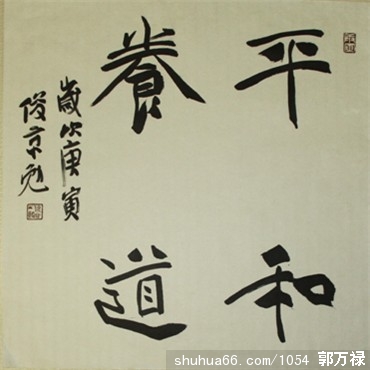 平和
養道
歲次庚寅
俊京勉
shuhua66.com/1054 郭万禄